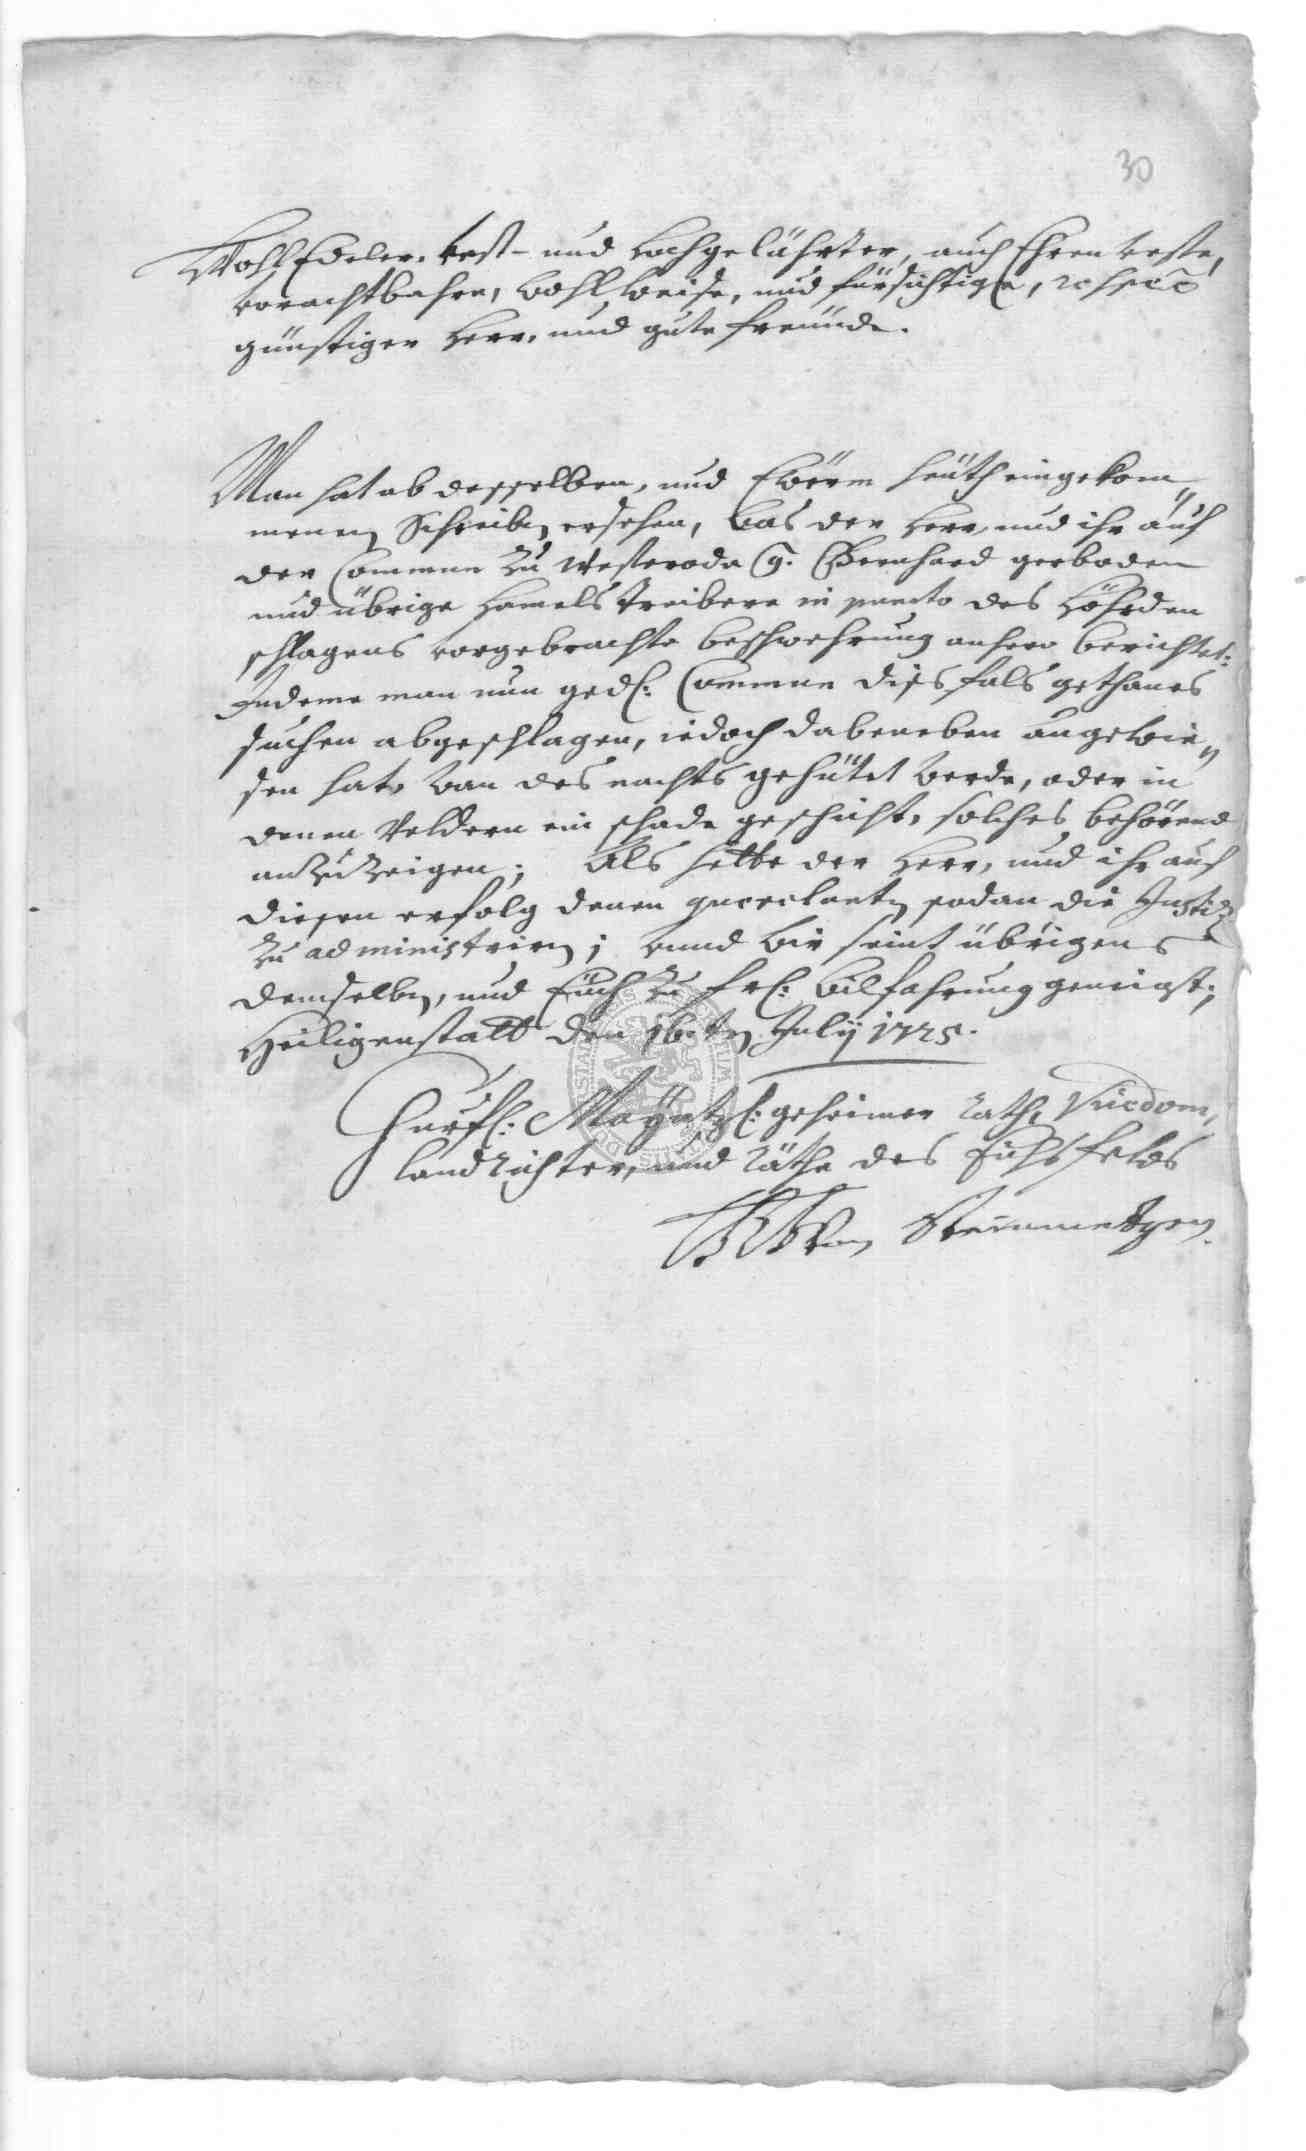 30
WohlEdeler, vest- und hochgelährter, auch Ehren veste,
vorachtbahre, wohl weise, und fürsichtige, respve
günstiger Herr, und gute freünde.
Man hat ab desselben, und Ewerm heüth eingekom
menen Schreiben ersehen, was der Herr, und ihr auf
der Commun zu Westeroda Bernhard gerboden
und übrige Hamels treibere in puncto des Höhrden
schlagens vorgebrachte beschwehrung anhero berichtet:
Indeme man nun gedl: Commun diesfals gethanes
suchen abgeschlagen, iedoch dabeneben angewie"
sen hat, wan des nachts gehütet werde, oder in
denen Veldern ein schade geschicht, solches behörend
anzuzeigen; Als hette der Herr, und ihr auf
diesen erfolg denen sodan die Justiz
zu administriren; vund wir seint übrigens
demselben, und Eüch zu frl: wilfahrung geneigt;
Heiligenstatt den 16ten July 1725.
Churfl: Mayntzl: geheimer Rath, Vicdom,
landrichter, und Räthe des Eichsfelds
von Steinmetzen